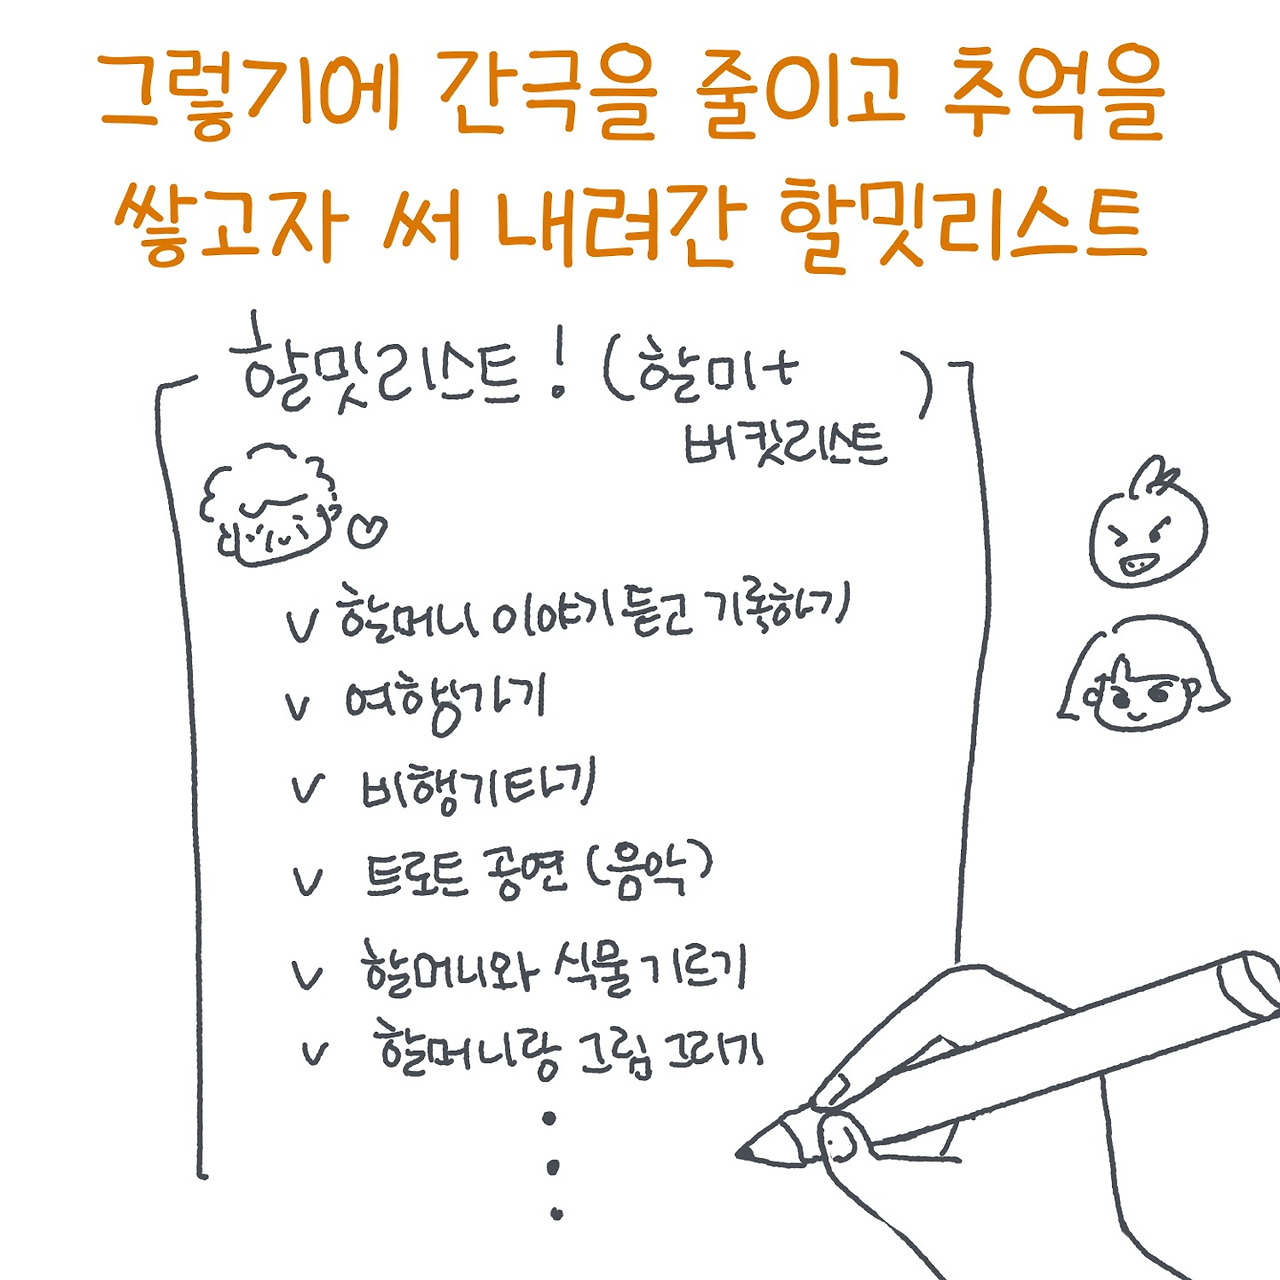 그렇기에 간극을 줄이고 추억을
쌓고자 써 내려간 할밋리스트
할밋리스트! (할미+
버킷리스트)
v 할머니 이야기 듣고 기록하기
v 여행가기
v 비행기타기
v 트로트 공연 (음악)
v 할머니와 식물 기르기
v 할머니랑 그림 그리기